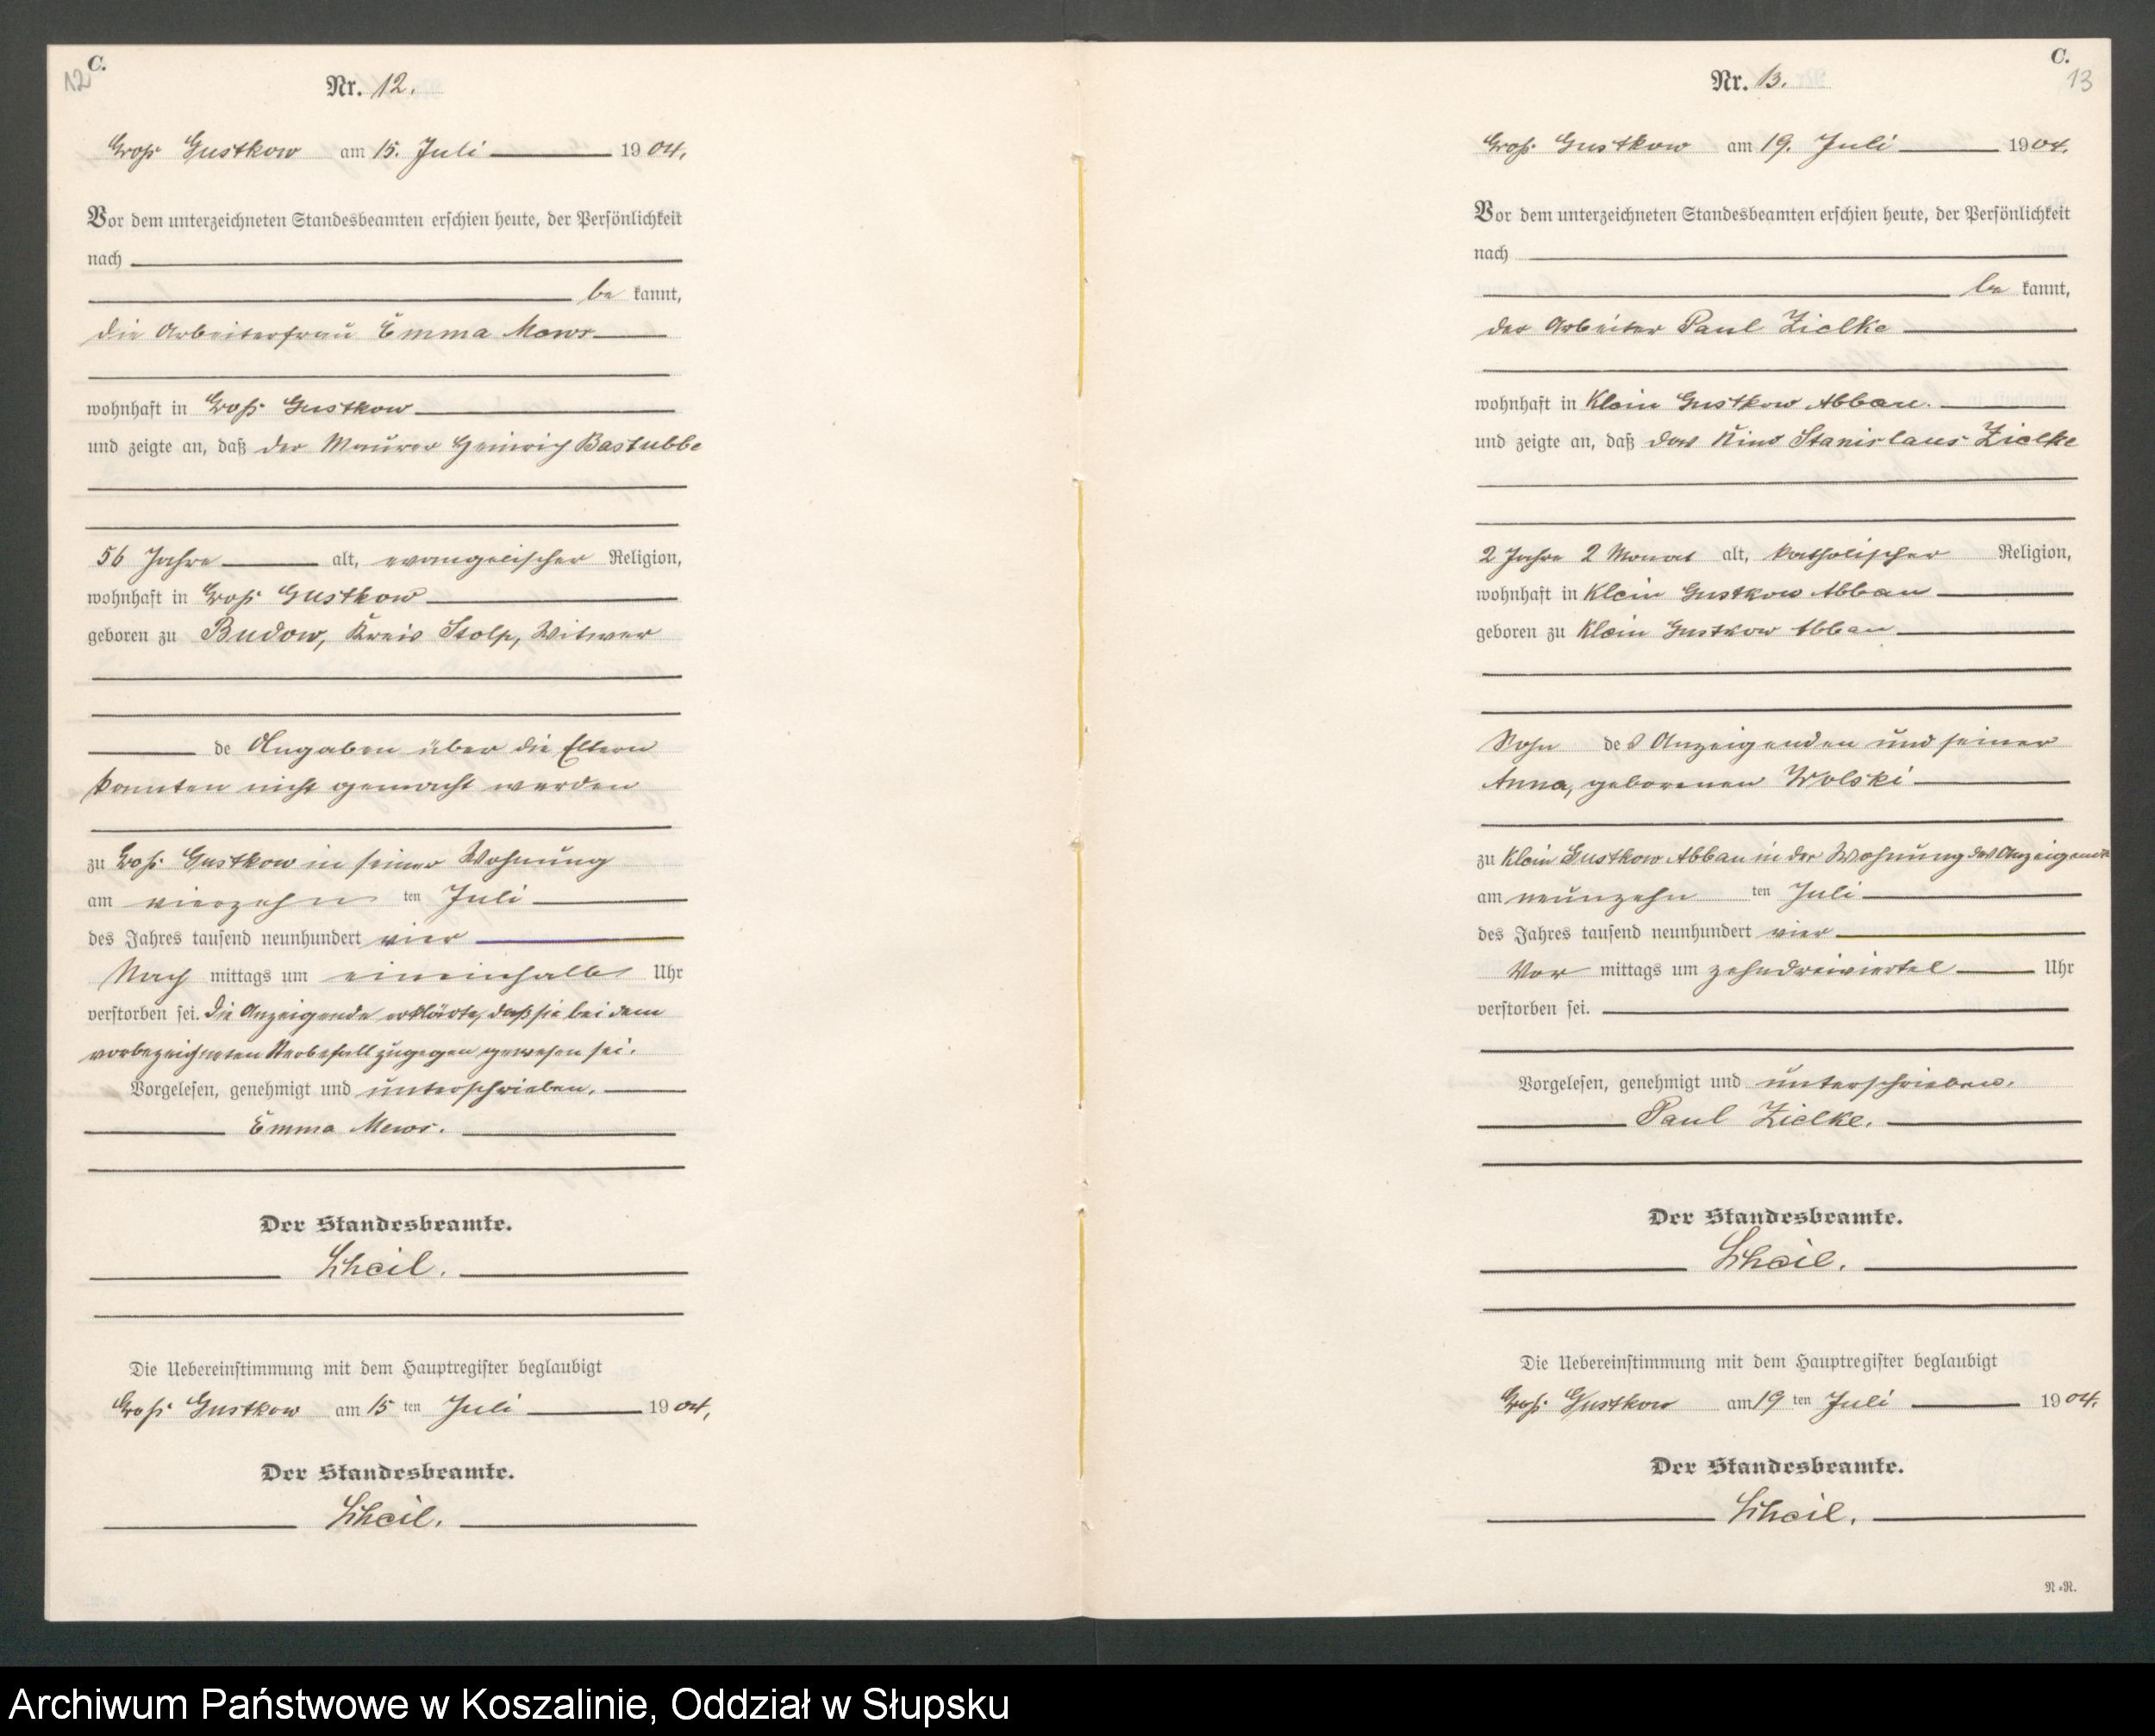 C.
12
Nr. 12.
Groß Gustkow am 15. Juli 1904.
Vor dem unterzeichneten Standesbeamten erschien heute, der Persönlichkeit
nach
be kannt,
die Arbeiterfrau Emma Mews
wohnhaft in Groß Gustkow
und zeigte an, daß der Maurer Heinrich Bastubbe
56 Jahre alt, evangelischer Religion,
wohnhaft in Groß Gustkow
geboren zu Budow, Kreis Stolp, Witwer
de Angaben über die Eltern
konnten nicht gemacht werden
zu Groß Gustkow in seiner Wohnung
am vierzehn ten Juli
des Jahres tausend neunhundert vier
Nach mittags um eineinhalb Uhr
verstorben sei. Die Anzeigende erklärte, daß sie bei dem
vorbezeichneten Sterbefall zugegen gewesen sei.
Vorgelesen, genehmigt und unterschrieben.
Emma Mews.
Der Standesbeamte.
Scheil.
Die Uebereinstimmung mit dem Hauptregister beglaubigt
Groß Gustkow am 15 ten Juli 1904.
Der Standesbeamte.
Scheil.
C.
13
Nr. 13.
Groß Gustkow am 19. Juli 1904.
Vor dem unterzeichneten Standesbeamten erschien heute, der Persönlichkeit
nach
be kannt,
der Arbeiter Paul Zielke
wohnhaft in Klein Gustkow Abbau.
und zeigte an, daß das Kind Stanislaus Zielke
2 Jahre 2 Monat alt, katholischer Religion,
wohnhaft in Klein Gustkow Abbau
geboren zu Klein Gustkow Abbau
Sohn des Anzeigenden und seiner
Anna, geborenen Wolski
zu Klein Gustkow Abbau in der Wohnung des Anzeigenden
am neunzehn ten Juli
des Jahres tausend neunhundert vier
Vor mittags um zehndreiviertel Uhr
verstorben sei.
Vorgelesen, genehmigt und unterschrieben.
Paul Zielke.
Der Standesbeamte.
Scheil.
Die Uebereinstimmung mit dem Hauptregister beglaubigt
Groß Gustkow am 19 ten Juli 1904.
Der Standesbeamte.
Scheil.
N.=R.
Archiwum Państwowe w Koszalinie, Oddział w Słupsku